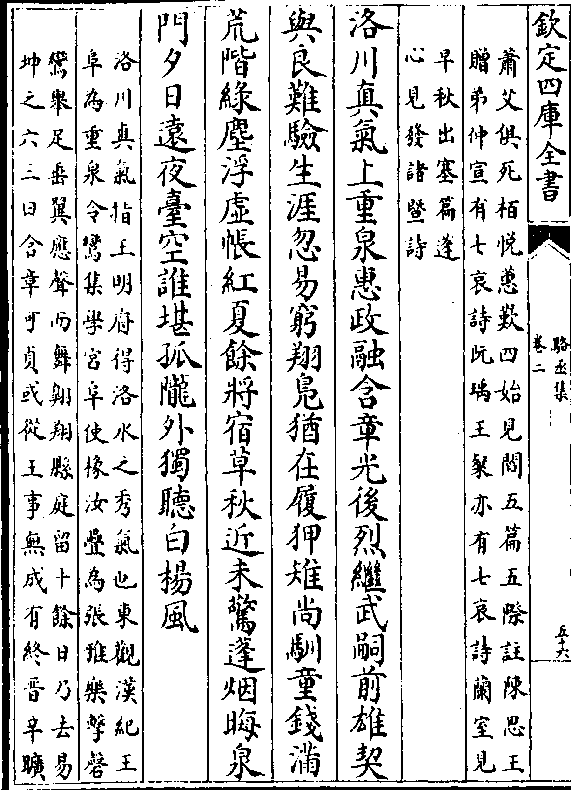 欽定四庫全書
駱丞集
卷二
五十六
蕭父俱死栢悦蕙歎四始見閻五篇五際註陳思王
贈弟仲宣有七哀詩阮瑀王粲亦有七哀詩蘭室見
早秋出塞篇蓬
心見發諸暨詩
洛川真氣上重泉惠政融含章光後烈繼武嗣前雄契
與良難驗生涯忽易窮翔鳧猶在履狎雉尚馴童錢滿
荒階綠塵浮虛帳紅夏餘將宿草秋近未驚蓬烟晦泉
門夕日遠夜臺空誰堪孤隴外獨聽白楊風
洛川真氣指王明府得洛水之秀氣也東觀漢紀王
阜為重泉令鸞集學宫阜使掾汝疊為張雅樂擊磬
鸞舉足垂翼應聲而舞翺翔縣庭留十餘日乃去易
坤之六三曰含章可貞或從王事無成有終晉皁曠